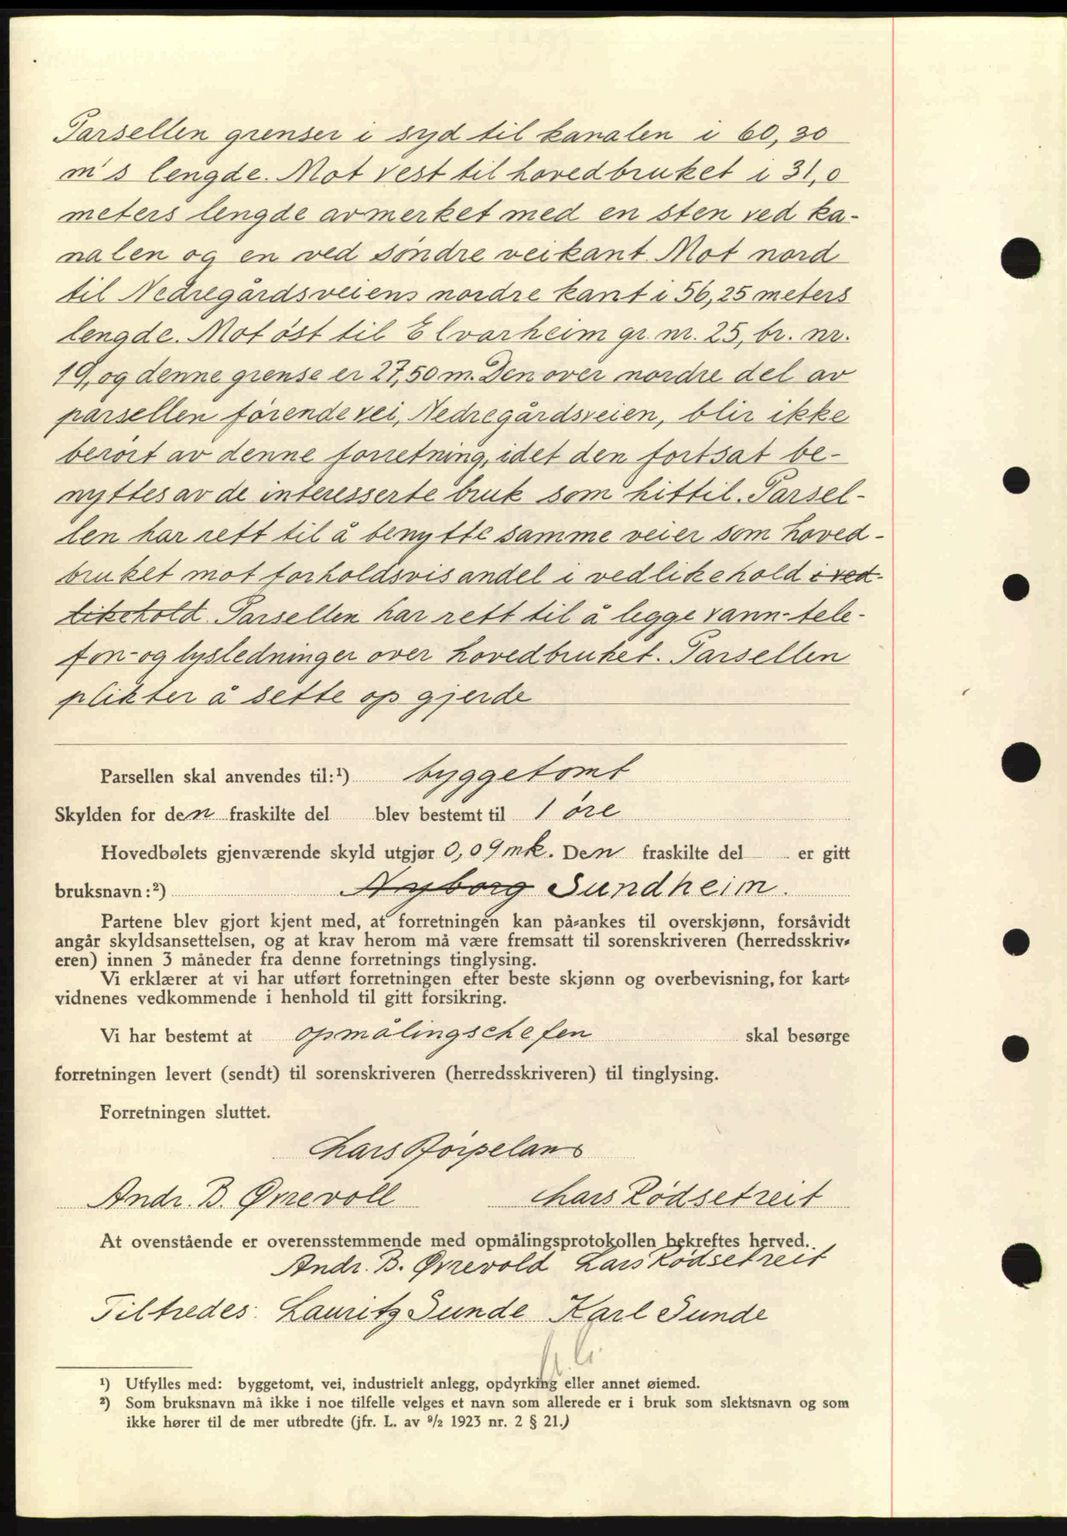 Parsellen grenser i syd til kanalen i 60,30
m's lengde. Mot vest til hovedbruket i 31,0
meters lengde avmerket med en sten ved ka-
nalen og en ved søndre veikant. Mot nord
til Nedregårdsveiens nordre kant i 56,25 meters
lengde. Mot øst til Elvarheim gr. nr. 25, br. nr.
19, og denne grense er 27,50 m. Den over nordre del av
parsellen førende vei, Nedregårdsveien, blir ikke
berørt av denne forretning, idet den fortsat be-
nyttes av de interesserte bruk som hittil. Parsel-
len har rett til å benytte samme veier som hoved-
bruket mot forholdsvis andel i vedlikehold i ved-
likehold. Parsellen har rett til å legge vann- tele-
fon- og lysledninger over hovedbruket. Parsellen
plikter å sette op gjerde
Parsellen skal anvendes til:¹) byggetomt
Skylden for den fraskilte del blev bestemt til 1 øre
Hovedbølets gjenværende skyld utgjør 0,09 mk. Den fraskilte del er gitt
bruksnavn:²) Nyborg Sundheim.
Partene blev gjort kjent med, at forretningen kan på-ankes til overskjønn, forsåvidt
angår skyldsansettelsen, og at krav herom må være fremsatt til sorenskriveren (herredsskriv-
eren) innen 3 måneder fra denne forretnings tinglysing.
Vi erklærer at vi har utført forretningen efter beste skjønn og overbevisning, for kart-
vidnenes vedkommende i henhold til gitt forsikring.
Vi har bestemt at opmålingschefen skal besørge
forretningen levert (sendt) til sorenskriveren (herredsskriveren) til tinglysing.
Forretningen sluttet.
Lars Jörpeland
Andr. B. Ørrevoll Lars Rödsetreit
At ovenstående er overensstemmende med opmålingsprotokollen bekreftes herved.
Andr. B. Ørrevold Lars Rödsetreit
Tiltredes: Lauritz Sunde Karl Sunde
¹) Utfylles med: byggetomt, vei, industrielt anlegg, opdyrking eller annet øiemed.
²) Som bruksnavn må ikke i noe tilfelle velges et navn som allerede er i bruk som slektsnavn og som
ikke hører til de mer utbredte (jfr. L. av ⁹/₂ 1923 nr. 2 § 21.)